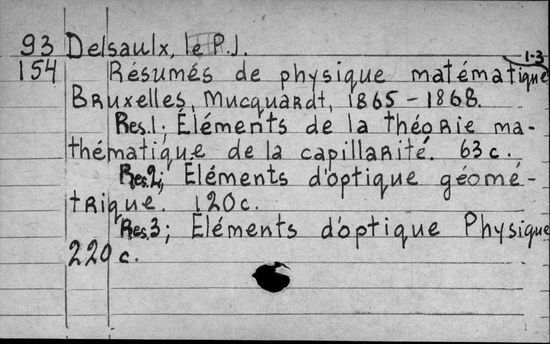 93 Delsaulx, le P.J.
1-3
154 Résumés de physique matématique
Bruxelles, Mucquardt, 1865-1868.
Res.1; Éléments de la théorie ma-
thématique de la capillarité. 63 c.
Res.2; Éléments d'optique géomé-
trique. 120 c.
Res.3; Éléments d'optique Physique
220 c.